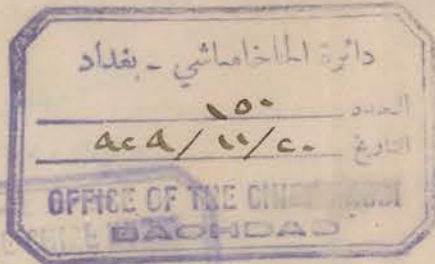 دائرة الحاخامباشي - بغداد
العدد ١٥٠
التاريخ ٢٠/١١/٩٢٩
OFFICE OF THE CHIEF RABBI
BAGHDAD